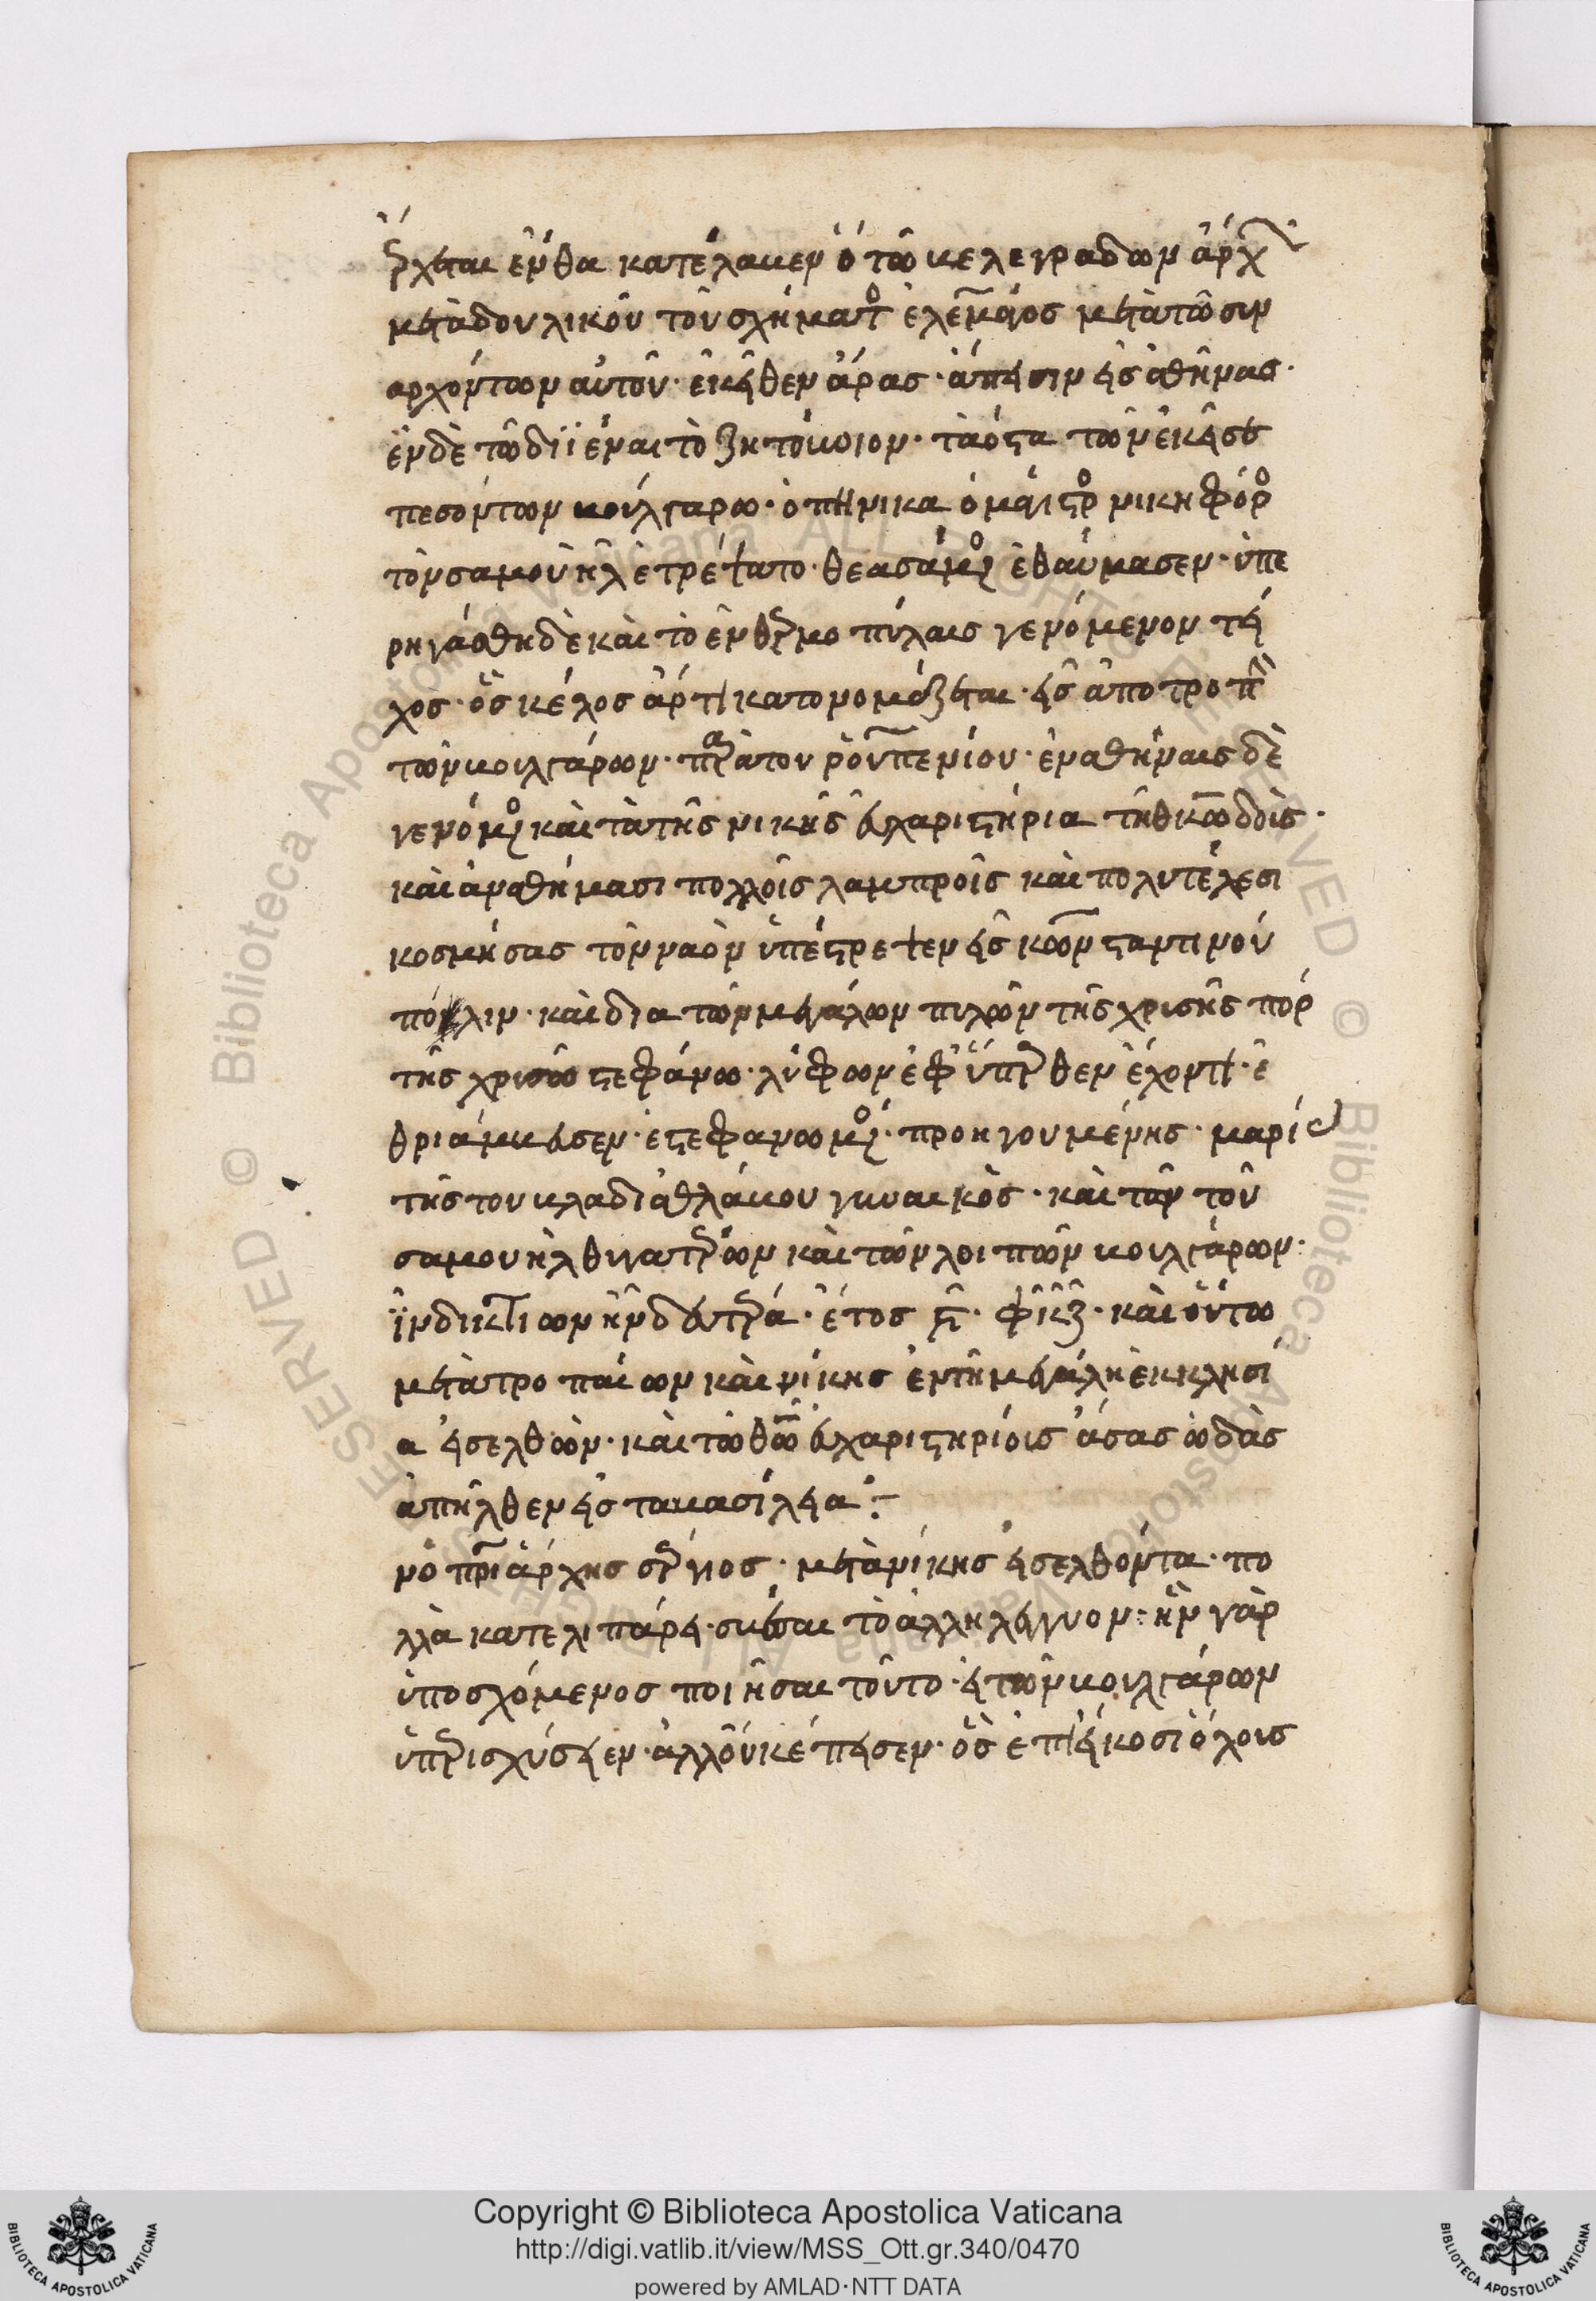 ἔρχεται ἔνθα κατέλαβεν ὁ τῶ βελεγράδων ἄρχ
μετὰ δουλικοῦ τοῦ σχήματ ἐλεμαγος μετὰ τῶ συν
αρχόντων αὐτοῦ· ἐκεῖθεν ἄρας· ἄπεισιν εἰς ἀθήνας·
ἐν δὲ τῶ διϊέναι τὸ ζητούνιον· τὰ ὀστα τῶν ἐκεῖσε
πεσόντων βουλγαρω· ὁπηνικα ὁ μάγιστρ νικηφόρ
τὸν σαμουὴλ ἐτρέψατο· θεασάμ ἐθαύμασεν· ὑπε
ρηγάσθη δὲ καὶ τὸ ἐν θερμο πύλαις γενόμενον τεῖ
χος· ὃς κέλος ἄρτι κατονομάζεται· εἰς ἀποτροπ
τῶν βουλγάρων· πρὰ τοῦ ῥουπενίου· ἐν αθήναις δὲ
γενόμ καὶ τὰ τῆς νικῆς εὐχαριστήρια τῆ θκω δοὶς·
καὶ ἀναθήμασι πολλοῖς λαμπροῖς καὶ πολυτέλεσι
κοσμήσας τὸν ναὸν ὑπέστρεψεν εἰς κωνσταντινού
πόλιν· καὶ δια τῶν μεγάλων πιλῶν τῆς χρισῆς πόρ
τῆς χρισῶ στεφάνω· λύφων ἐφ ὕπερθεν ἔχοντι· ἐ
θριάμβευσεν· ἐστεφανωμ· προηγουμένης· μαρίας
τῆς του βλαδισθλάβου γυναικὸς· καὶ τῶν τοῦ
σαμουὴλ θυγατέρων καὶ τῶν λοιπῶν βουλγάρων·
ϊνδικτιων ἦν δευτέρα· ἔτος ϛ· φκζ· καὶ οὕτω
μετὰ τροπαίων καὶ νίκης ἐν τῆ μεγάλη ἐκκλησί
α εἰσελθὼν· καὶ τῶ θω εὐχαριστηρίοις ἄσας ὠδὰς
ἀπῆλθεν εἰς τα βασίλεια:–
ν ὁ πριάρχης σέργιος· μετὰ νίκης εἰσελθόντα· πο
λλὰ κατελιπάρει· σκέσαι τὸ ἀλληλέγγυον· ἦν γὰρ
ὑποσχόμενος ποιῆσαι τοῦτο· εἰ τῶν βουλγάρων
ὑπερισχύσειεν· ἀλλοὐκ ἔπεισεν· ὃς ἐπὶ εἴκοσι ὅλοις